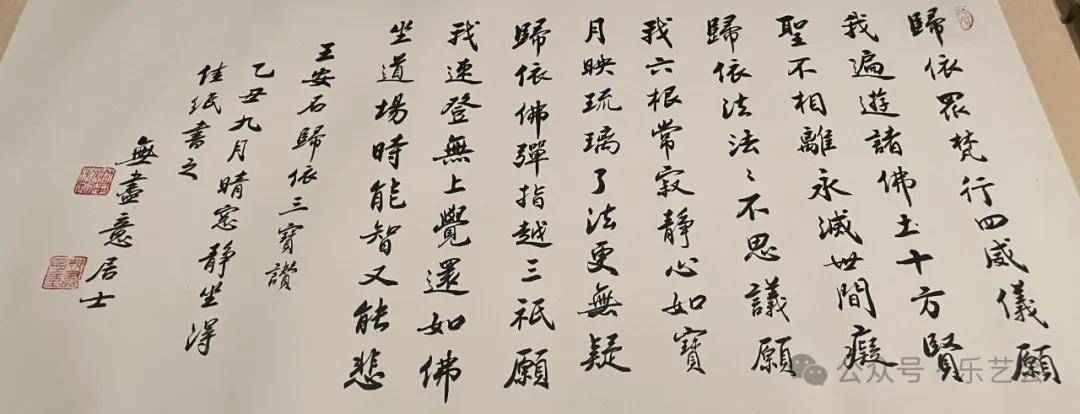 歸依眾梵行四威儀願
我遍遊諸佛土十方賢
聖不相離永滅世間癡
歸依法法〻不思議願
我六根常寂靜心如寶
月映琉璃了法更無疑
歸依佛彈指越三祇願
我速登無上覺還如佛
坐道場時能智又能悲
王安石歸依三寶讃
乙丑九月晴窓靜坐得
佳紙書之
無盡意居士
公众号 乐艺